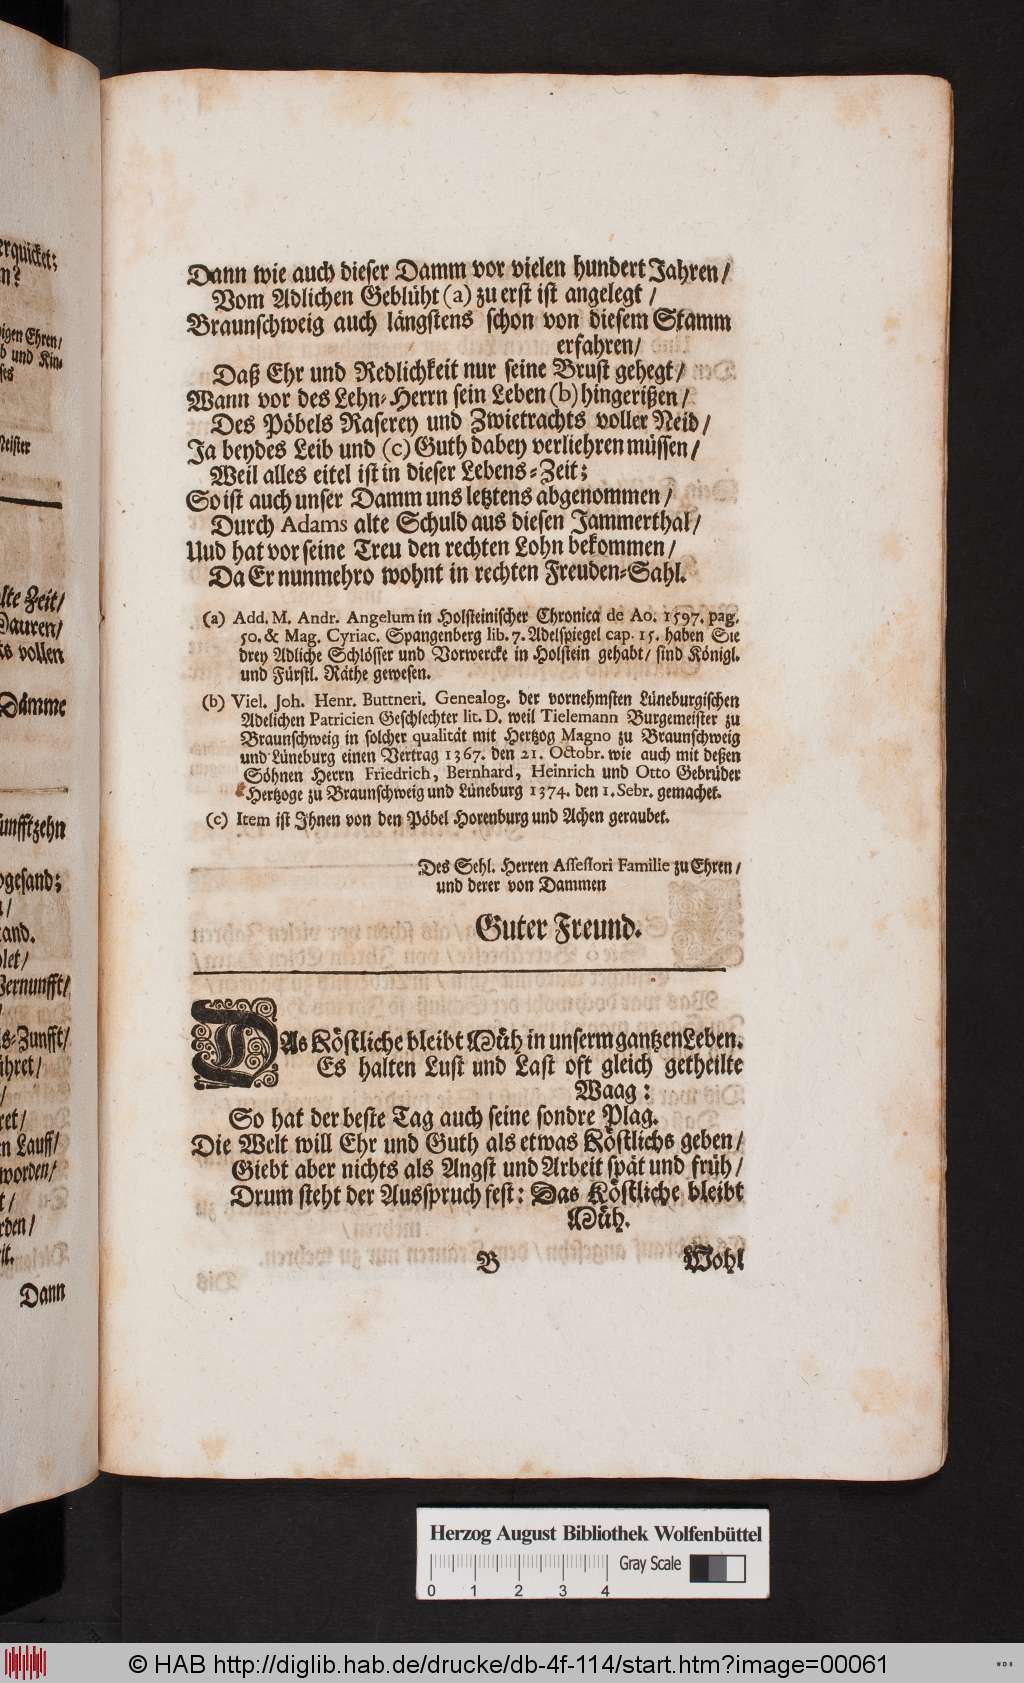 erquicket;
n?
igen Ehren/
b und Kin-
ses
Meister
lte Zeit/
Dauren/
ks vollen
Dämme
ünfftzehn
gesand;
n/
tand.
let/
Vernunfft/
s-Zunfft/
ühret/
/
ret/
n Lauff/
worden/
t/
rden/
it.
Dann
Dann wie auch dieser Damm vor vielen hundert Jahren/
Vom Adlichen Geblüht (a) zu erst ist angelegt/
Braunschweig auch längstens schon von diesem Stamm
erfahren/
Daß Ehr und Redlichkeit nur seine Brust gehegt/
Wann vor des Lehn-Herrn sein Leben (b) hingerißen/
Des Pöbels Raserey und Zwietrachts voller Neid/
Ja beydes Leib und (c) Guth dabey verliehren müssen/
Weil alles eitel ist in dieser Lebens-Zeit;
So ist auch unser Damm uns letztens abgenommen/
Durch Adams alte Schuld aus diesen Jammerthal/
Uud hat vor seine Treu den rechten Lohn bekommen/
Da Er nunmehro wohnt in rechten Freuden-Sahl.
(a) Add. M. Andr. Angelum in Holsteinischer Chronica de Ao. 1597. pag.
50. & Mag. Cyriac. Spangenberg lib. 7. Adelspiegel cap. 15. haben Sie
drey Adliche Schlösser und Vorwercke in Holstein gehabt/ sind Königl.
und Fürstl. Räthe gewesen.
(b) Viel. Joh. Henr. Buttneri. Genealog. der vornehmsten Lüneburgischen
Adelichen Patricien Geschlechter lit. D. weil Tielemann Burgemeister zu
Braunschweig in solcher qualität mit Hertzog Magno zu Braunschweig
und Lüneburg einen Vertrag 1367. den 21. Octobr. wie auch mit deßen
Söhnen Herrn Friedrich, Bernhard, Heinrich und Otto Gebrüder
Hertzoge zu Braunschweig und Lüneburg 1374. den 1. Sebr. gemachet.
(c) Item ist Ihnen von den Pöbel Horenburg und Achen geraubet.
Des Sehl. Herren Assessori Familie zu Ehren/
und derer von Dammen
Guter Freund.
DAs Köstliche bleibt Müh in unserm gantzen Leben.
Es halten Lust und Last oft gleich getheilte
Waag:
So hat der beste Tag auch seine sondre Plag.
Die Welt will Ehr und Guth als etwas Köstlichs geben/
Giebt aber nichts als Angst und Arbeit spät und früh/
Drum steht der Ausspruch fest: Das Köstliche bleibt
Müh.
B Wohl
Herzog August Bibliothek Wolfenbüttel
Gray Scale
0 1 2 3 4
© HAB http://diglib.hab.de/drucke/db-4f-114/start.htm?image=00061